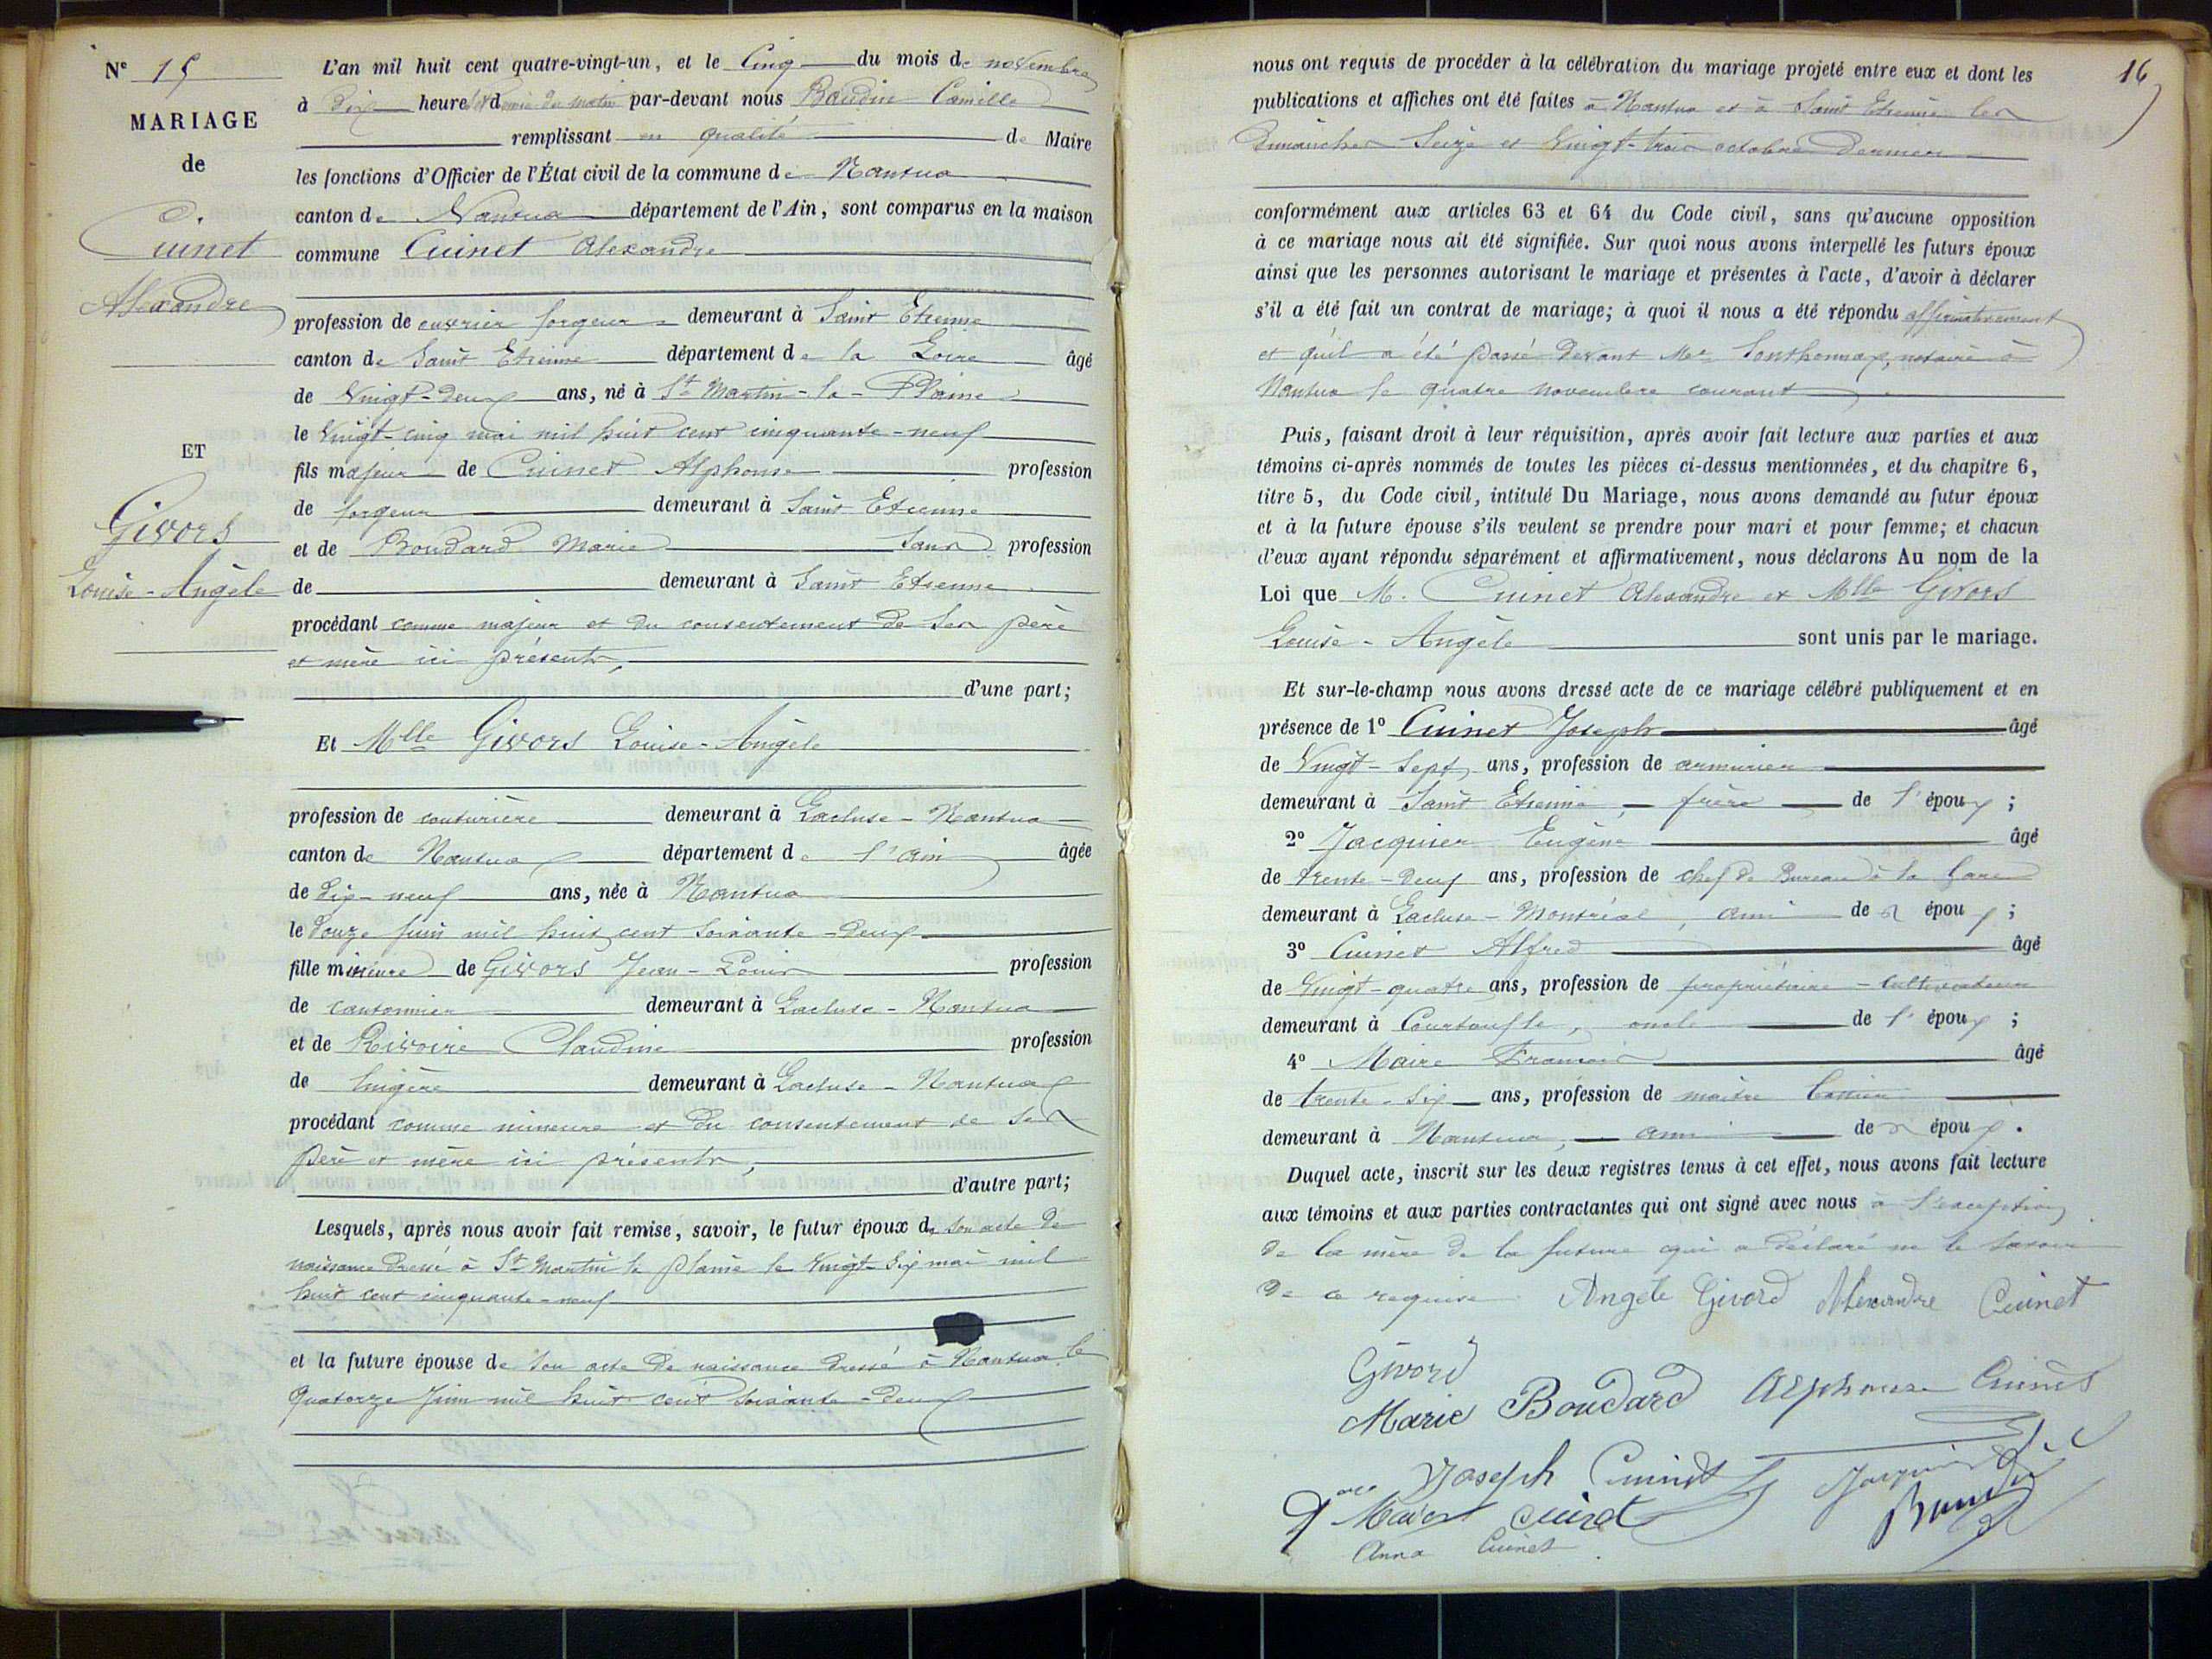 N° 15
MARIAGE
de
Cuinet
Alexandre
ET
Givors
Louise-Angèle
L'an mil huit cent quatre-vingt-un, et le Cinq du mois de novembre
à dix heures et demie du matin par-devant nous Baudin Camille
remplissant en qualité de Maire
les fonctions d'Officier de l'État civil de la commune de Nantua
canton de Nantua département de l'Ain, sont comparus en la maison
commune Cuinet Alexandre
profession de ouvrier forgeur demeurant à Saint Etienne
canton de Saint Etienne département de la Loire âgé
de Vingt-deux ans, né à St Martin-la-Plaine
le Vingt-cinq mai mil huit cent cinquante-neuf
fils majeur de Cuinet Alphonse profession
de forgeur demeurant à Saint Etienne
et de Boudard Marie Sans profession
de demeurant à Saint Etienne
procédant comme majeur et du consentement de ses père
et mère ici présents,
d'une part;
Et Mlle Givors Louise-Angèle
profession de couturière demeurant à Lacluse-Nantua
canton de Nantua département de l'Ain âgée
de dix-neuf ans, née à Nantua
le douze juin mil huit cent soixante-deux
fille mineure de Givors Jean-Louis profession
de cantonnier demeurant à Lacluse-Nantua
et de Rivoire Claudine profession
de lingère demeurant à Lacluse-Nantua
procédant comme mineure et du consentement de ses
père et mère ici présents,
d'autre part;
Lesquels, après nous avoir fait remise, savoir, le futur époux de son acte de
naissance dressé à St Martin la plaine le Vingt-six mai mil
huit cent cinquante-neuf
et la future épouse de son acte de naissance dressé à Nantua le
quatorze Juin mil huit cent soixante-deux
16
nous ont requis de procéder à la célébration du mariage projeté entre eux et dont les
publications et affiches ont été faites à Nantua et à Saint Etienne les
Dimanches Seize et Vingt-trois octobre dernier
conformément aux articles 63 et 64 du Code civil, sans qu'aucune opposition
à ce mariage nous ait été signifiée. Sur quoi nous avons interpellé les futurs époux
ainsi que les personnes autorisant le mariage et présentes à l'acte, d'avoir à déclarer
s'il a été fait un contrat de mariage; à quoi il nous a été répondu affirmativement
et qu'il a été passé devant Me Sonthonnax, notaire à
Nantua le quatre novembre courant
Puis, faisant droit à leur réquisition, après avoir fait lecture aux parties et aux
témoins ci-après nommés de toutes les pièces ci-dessus mentionnées, et du chapitre 6,
titre 5, du Code civil, intitulé Du Mariage, nous avons demandé au futur époux
et à la future épouse s'ils veulent se prendre pour mari et pour femme; et chacun
d'eux ayant répondu séparément et affirmativement, nous déclarons Au nom de la
Loi que M. Cuinet Alexandre et Mlle Givors
Louise-Angèle sont unis par le mariage.
Et sur-le-champ nous avons dressé acte de ce mariage célébré publiquement et en
présence de 1° Cuinet Joseph âgé
de Vingt-sept ans, profession de armurier
demeurant à Saint Etienne, frère de l'époux;
2° Jacquier Eugène âgé
de trente-deux ans, profession de chef de Bureau à la Gare
demeurant à Lacluse-Montréal, ami des époux;
3° Cuinet Alfred âgé
de Vingt-quatre ans, profession de propriétaire-Cultivateur
demeurant à Courtoufle, oncle de l'époux;
4° Maire François âgé
de trente-six ans, profession de maître
demeurant à Nantua, ami des époux.
Duquel acte, inscrit sur les deux registres tenus à cet effet, nous avons fait lecture
aux témoins et aux parties contractantes qui ont signé avec nous à l'exception
de la mère de la future qui a déclaré ne le savoir
de ce requise Angèle Givord Alexandre Cuinet
Givord
Marie Boudard Alphonse Cuinet
Joseph Cuinet Jacquier
Maire Cuinet Baudin
Anna Cuinet